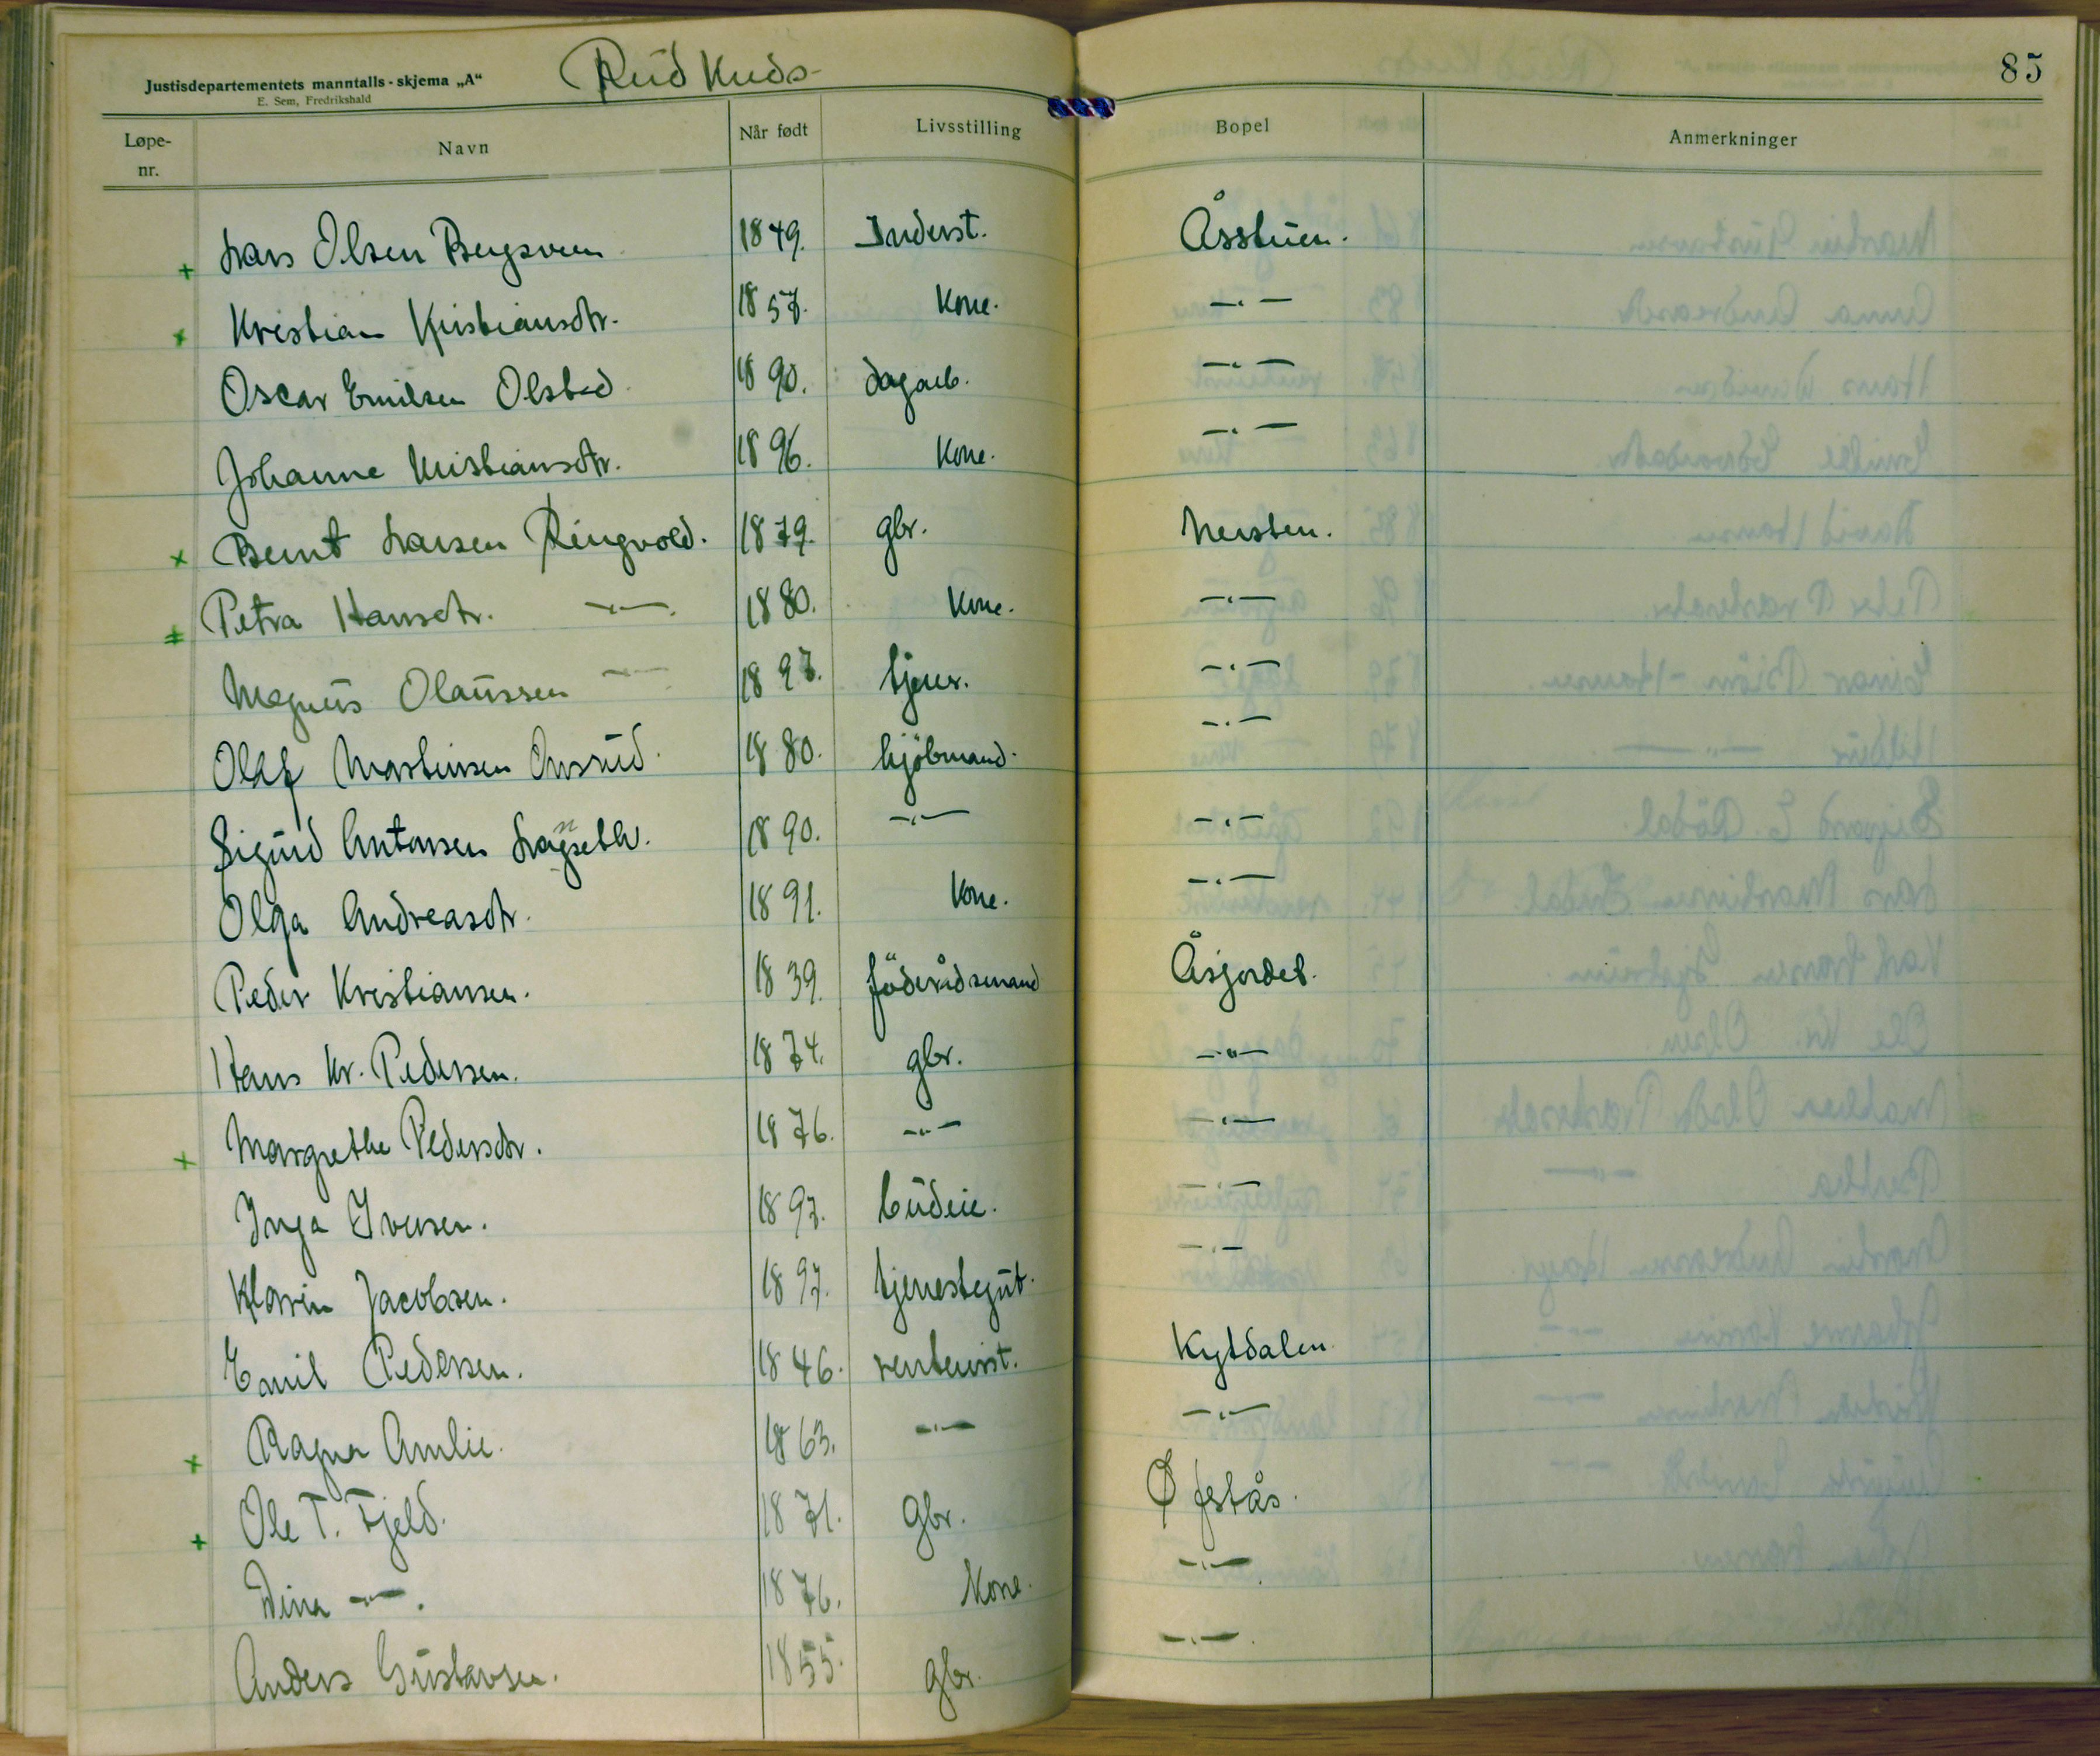 Justisdepartementets manntalls-skjema „A“ Rud Kreds 85
E. Sem, Fredrikshald
Løpe-nr. Navn Når født Livsstilling Bopel Anmerkninger
+ Lars Olsen Bergsveen 1849. Inderst. Åsstuen.
+ Kristian Kristiansdtr. 1857. Kone. —.—
Oscar Emilsen Olstad 1890. dagarb. —.—
Johanne Kristiansdtr. 1896. Kone. —.—
+ Bernt Larsen Ringvold. 1879. gbr. Nersten.
+ Petra Hansdtr. —.— 1880. Kone. —.—
Magnus Olaussen 1897. tjener. —.—
Olaf Martinsen Onsrud. 1880. kjöbmand. —.—
Sigurd Antonsen 1890. —.— —.—
Olga Andreasdtr. 1891. Kone. —.—
Peder Kristiansen. 1839. föderådsmand Åsjordet.
Hans Kr. Pedersen. 1874. gbr. —"—
+ Margrethe Pedersdtr. 1876. —"— —.—
Inga Iversen. 1897. budeie. —.—
Klarin Jacobsen. 1897. tjenestegut. —.—
Emil Pedersen. 1846. rentenist. Kytdalen.
+ Ragna Amlie. 1863. —.— —.—
+ Ole T. Fjeld. 1871. Gbr. Øfstås.
Dina —"—. 1876. Kone. —.—.
Anders Gustavsen. 1855. gbr. —.—.